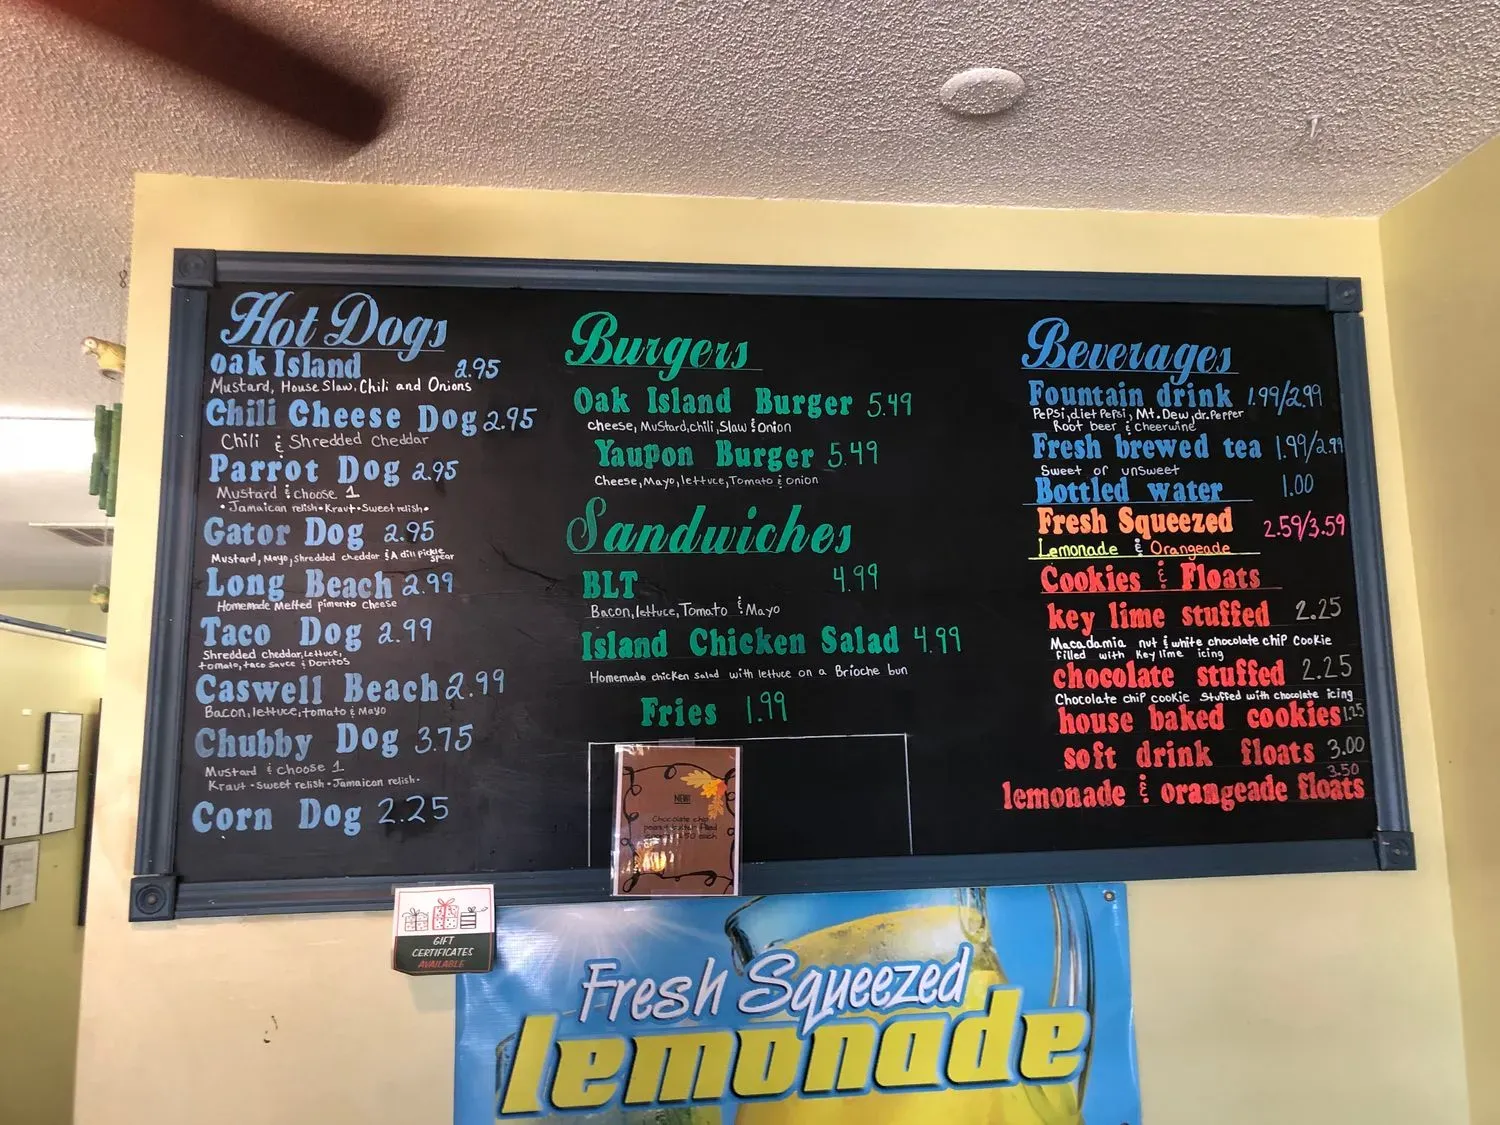 Hot Dogs
oak Island 2.95
Mustard, House Slaw, Chili and Onions
Chili Cheese Dog 2.95
Chili & Shredded Cheddar
Parrot Dog 2.95
Mustard & choose 1
• Jamaican relish • Kraut • Sweet relish •
Gator Dog 2.95
Mustard, Mayo, shredded cheddar & A dill pickle spear
Long Beach 2.99
Homemade Melted pimento cheese
Taco Dog 2.99
Shredded cheddar, Lettuce,
tomato, taco sauce & Doritos
Caswell Beach 2.99
Bacon, lettuce, tomato & Mayo
Chubby Dog 3.75
Mustard & choose 1
Kraut • sweet relish • Jamaican relish •
Corn Dog 2.25
Burgers
Oak Island Burger 5.49
cheese, Mustard, chili, Slaw & Onion
Yaupon Burger 5.49
Cheese, Mayo, lettuce, Tomato & onion
Sandwiches
BLT 4.99
Bacon, lettuce, Tomato & Mayo
Island Chicken Salad 4.99
Homemade chicken salad with lettuce on a Brioche bun
Fries 1.99
NEW!
Chocolate chip
peanut butter filled
Beverages
Fountain drink 1.99/2.99
Pepsi, diet Pepsi, Mt. Dew, dr. Pepper
Root beer & Cheerwine
Fresh brewed tea 1.99/2.99
Sweet or unsweet
Bottled water 1.00
Fresh Squeezed 2.59/3.59
Lemonade & Orangeade
Cookies & Floats
key lime stuffed 2.25
Macadamia nut & white chocolate chip cookie
filled with Key lime icing
chocolate stuffed 2.25
Chocolate chip cookie stuffed with chocolate icing
house baked cookies 1.25
soft drink floats 3.00
3.50
lemonade & orangeade floats
GIFT
CERTIFICATES
AVAILABLE
Fresh Squeezed
lemonade